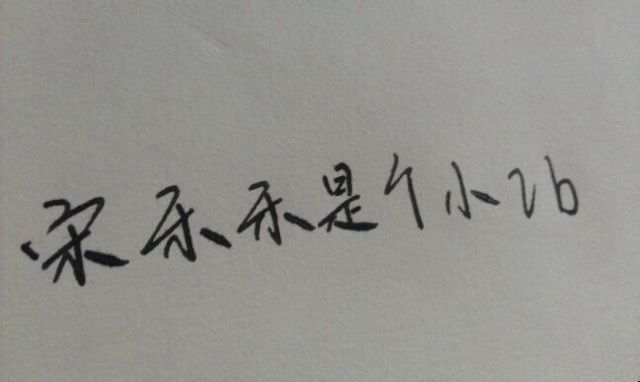 宋禾禾是个小2b